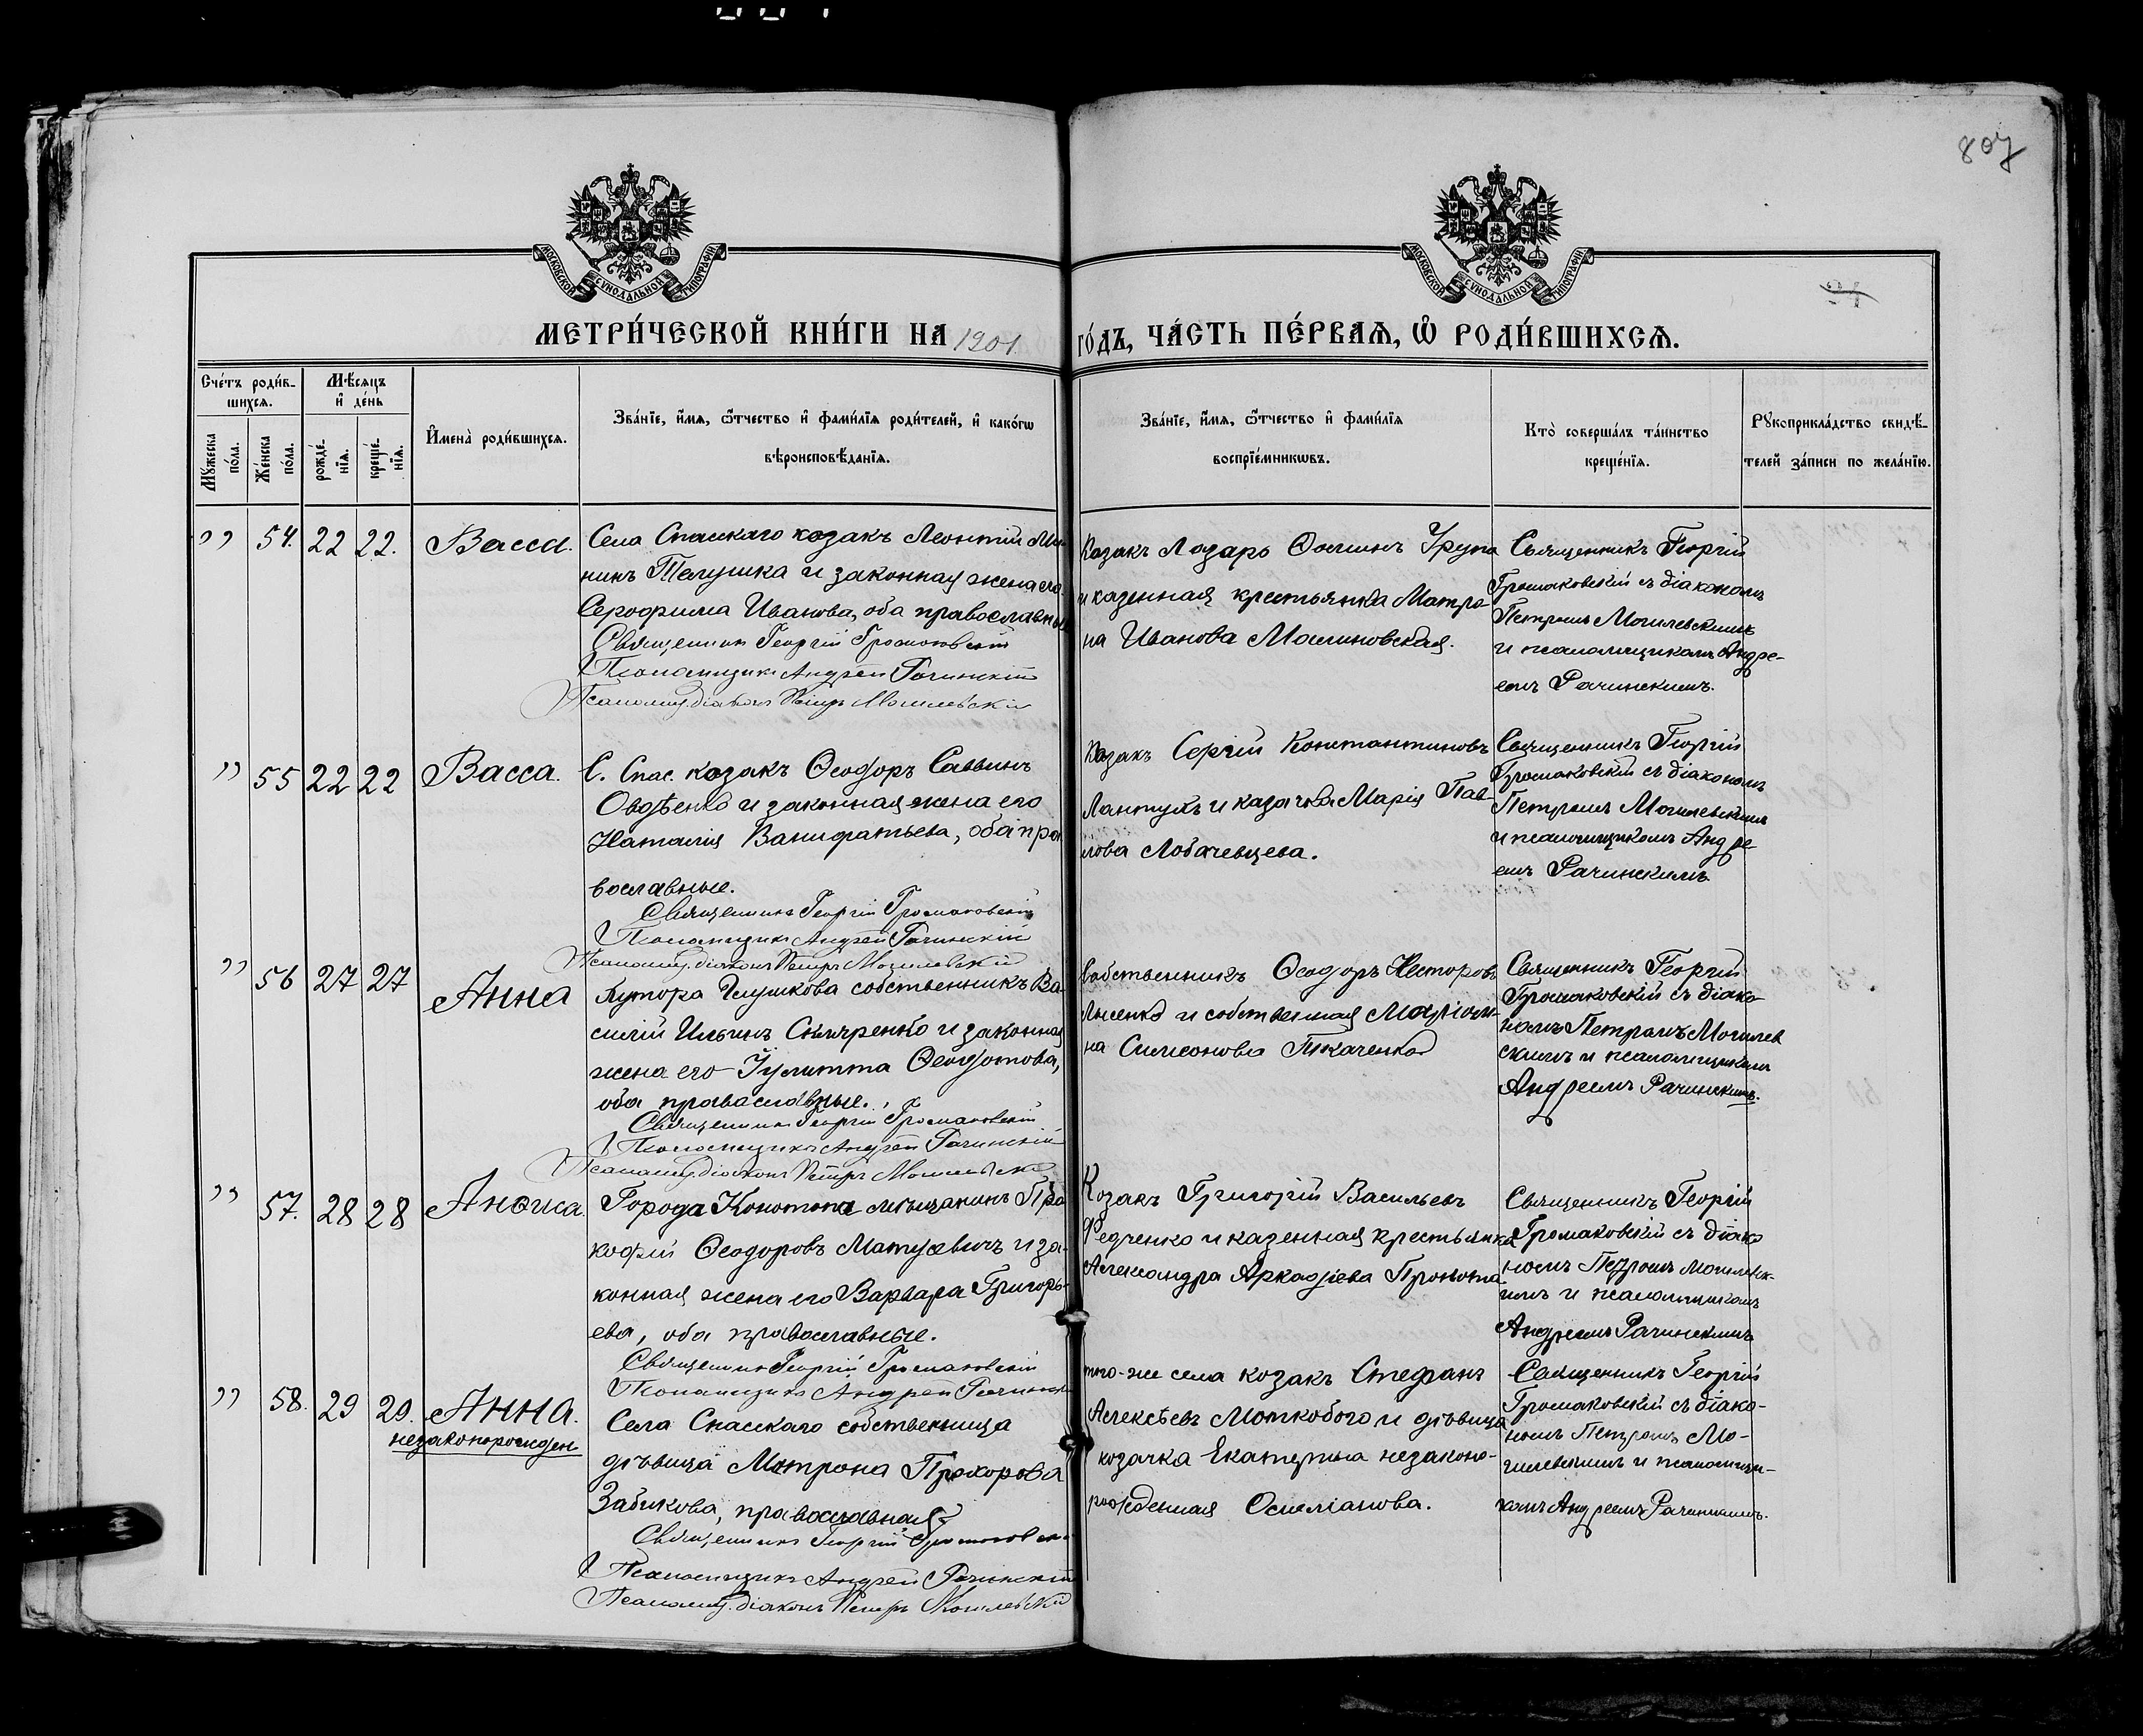 807
МОСКОВСКОЙ СУНОДАЛЬНОЙ ТИПОГРАФІИ
МОСКОВСКОЙ СУНОДАЛЬНОЙ ТИПОГРАФІИ
МЕТРИ́ЧЕСКОЙ КНИ́ГИ НА 1901
ГО́ДЪ, ЧА́СТЬ ПЕ́РВАѦ, Ѡ҆ РОДИ́ВШИХСѦ.
Сче́тъ роди́в-
шихсѧ.
Мѣ́сѧцъ
и҆ де́нь
Мꙋ́жеска
по́ла.
Же́нска
по́ла.
рожде́-
нїѧ.
креще́-
нїѧ.
И҆мена̀ роди́вшихсѧ.
Зва́нїе, и҆́мѧ, ѻ҆́тчество и҆ фами́лїѧ роди́телей, и҆ како́гѡ
вѣроисповѣ́данїѧ.
Зва́нїе, и҆́мѧ, ѻ҆́тчество и҆ фами́лїѧ
воспрїе́мникѡвъ.
Кто̀ соверша́лъ та́инство
креще́нїѧ.
Рꙋкоприкла́дство свидѣ́-
телей за́писи по жела́нїю.
" 54. 22 22. Васса.
Села Спасскаго козакъ Леонтій Ми-
нинъ Телушка и законная жена его
Серафима Иванова, оба православные
Священникъ Георгій Громаковскій
Псаломщикъ Андрей Рачинскій
Псаломщ. діаконъ Петръ Могилевскій
Козакъ Лазарь Фоминъ
и казенная крестьянка Матро-
на Иванова Малиновская.
Священникъ Георгій
Громаковскій съ діакономъ
Петромъ Могилевскимъ
и псаломщикомъ Андре-
емъ Рачинскимъ.
" 55 22 22 Васса.
С. Спас. козакъ Ѳеодоръ Саввинъ
Овдѣенко и законная жена его
Наталія Ванифатьева, оба пра
вославные.
Священникъ Георгій Громаковскій
Псаломщикъ Андрей Рачинскій
Псаломщ. діаконъ Петръ Могилевскій
Козакъ Сергій Константиновъ
Лантухъ и казачка Марія Пав-
лова Лобачевцева.
Священникъ Георгій
Громаковскій съ діакономъ
Петромъ Могилевскимъ
и псаломщикомъ Андре
емъ Рачинскимъ
" 56 27 27 Анна
Хутора Глушкова собственникъ Ва-
силій Ильинъ Скляренко и законная
жена его Іулитта Ѳеодотова,
оба православные.
Священникъ Георгій Громаковскій
Псаломщикъ Андрей Рачинскій
Псаломщ. діаконъ Петръ Могилевскій
Собственникъ Ѳеодоръ Несторовъ
Лысенко и собственная Маріам-
на Симеонова Ткаченкова
Священникъ Георгій
Громаковскій съ діако-
номъ Петромъ Могилев
скимъ и псаломщикомъ
Андреемъ Рачинскимъ.
" 57. 28 28 Анѳиса.
Города Конотопа мѣщанинъ Про
кофій Ѳеодоровъ Матусевичъ и за-
конная жена его Варвара Григорь-
ева, оба православные.
Священникъ Георгій Громаковскій
Псаломщикъ Андрей Рачинскій
Козакъ Григорій Васильевъ
Федченко и казенная крестьянка
Александра Аркадіева
Священникъ Георгій
Громаковскій съ діако
номъ Петромъ Могилевск-
имъ и псаломщикомъ
Андреемъ Рачинскимъ
" 58. 29 29. Анна.
незаконорожден
Села Спасскаго собственница
дѣвица Матрона Прохорова
Забикова, православная.
Священникъ Георгій Громаковскій
Псаломщикъ Андрей Рачинскій
Псаломщ. діаконъ Петръ Могилевскій
того-же села козакъ Стефанъ
Алексѣевъ и дѣвица
козачка Екатерина незаконо-
рожденная
Священникъ Георгій
Громаковскій съ діако-
номъ Петромъ Мо-
гилевскимъ и псаломщи-
комъ Андреемъ Рачинскимъ.